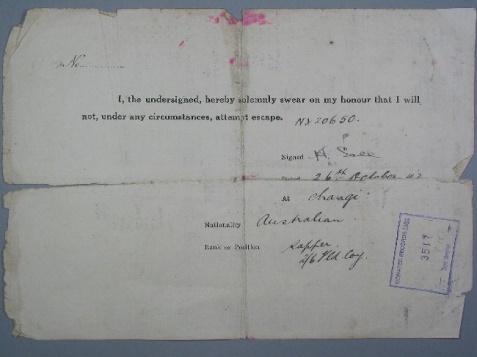 No.
I, the undersigned, hereby solemnly swear on my honour that I will
not, under any circumstances, attempt escape.
NX20650.
Signed H.
26th October 42
At Changi
Nationality Australian
Rank or Position Sapper.
2/6 Fld Coy.
3517